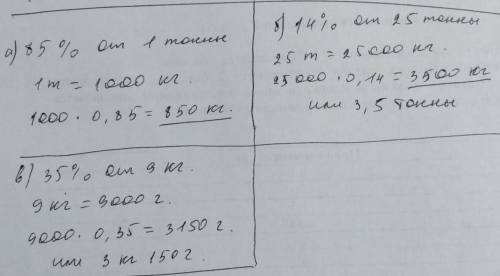 а) 85% от 1 тонны
1 т = 1000 кг.
1000 · 0,85 = 850 кг.
б) 14% от 25 тонны
25 т = 25000 кг.
25000 · 0,14 = 3500 кг
или 3,5 тонны
в) 35% от 9 кг.
9 кг = 9000 г.
9000 · 0,35 = 3150 г.
или 3 кг 150 г.